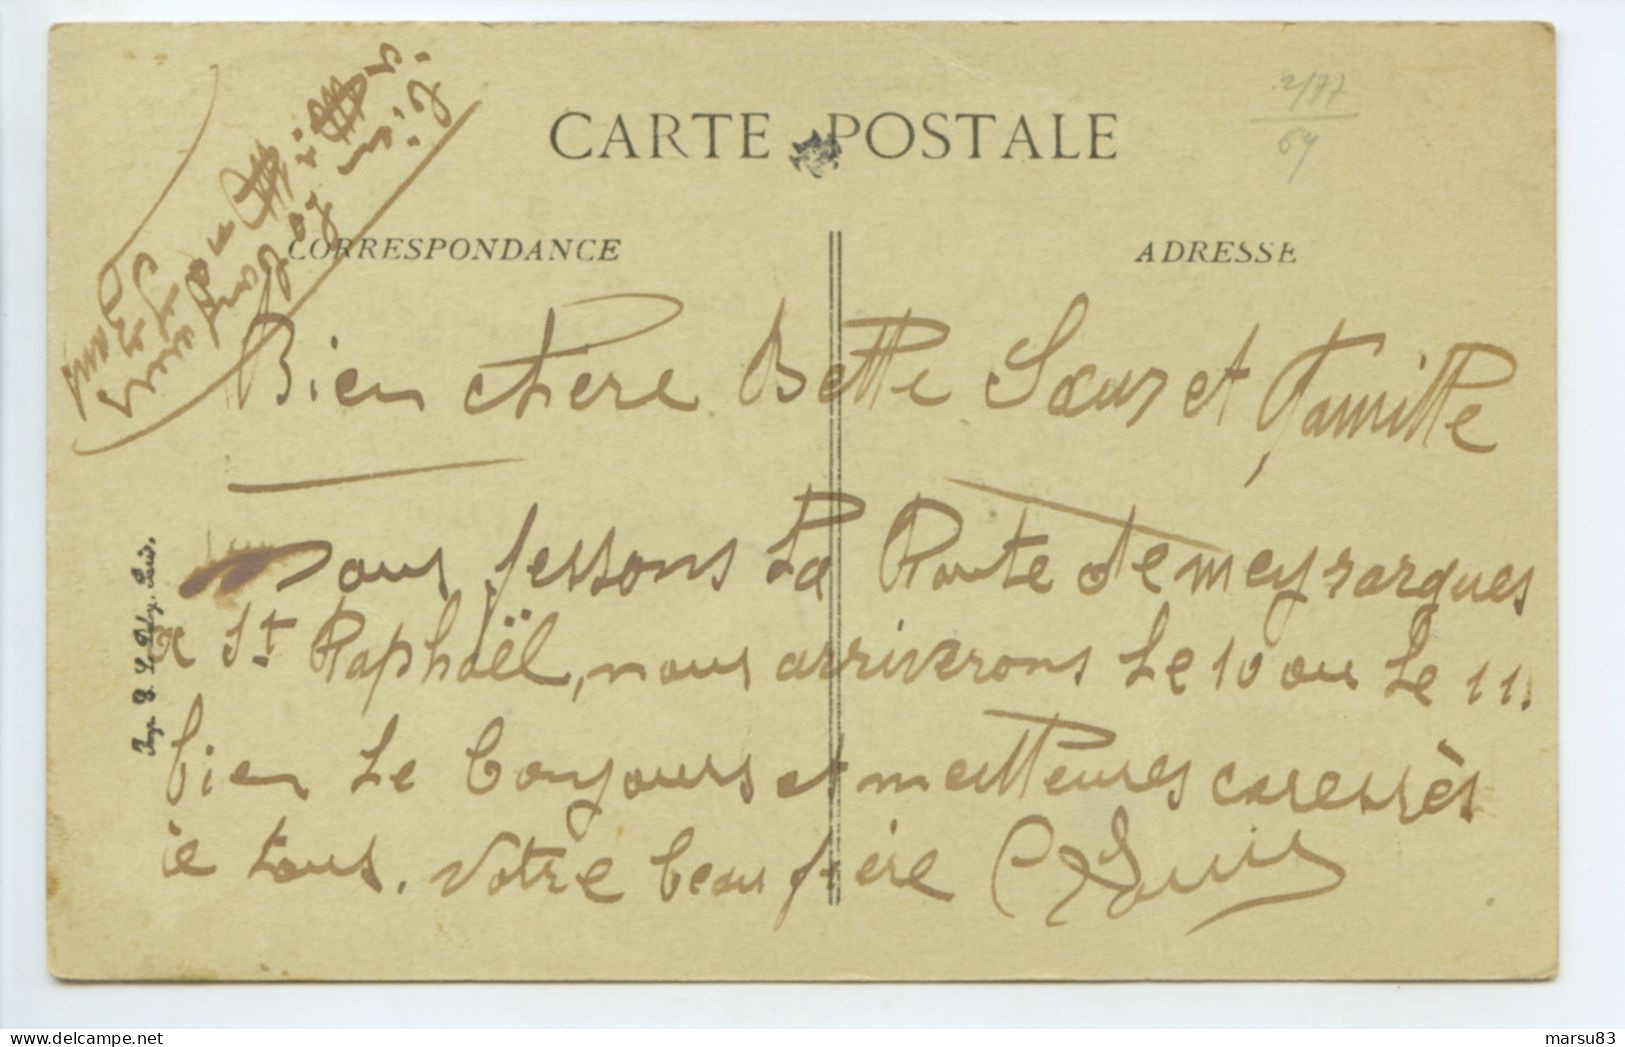 CARTE POSTALE
2/77
64
CORRESPONDANCE
ADRESSE
Bien chère Belle Sœur et Famille
nous fessons La Route de meyrargues
a St Raphaël, nous arriverons Le 10 ou Le 11.
bien Le bonjours et meilleures caressès
a tous. votre beau frère Louis
Imp. E. Le Deley, Paris.
marsu83